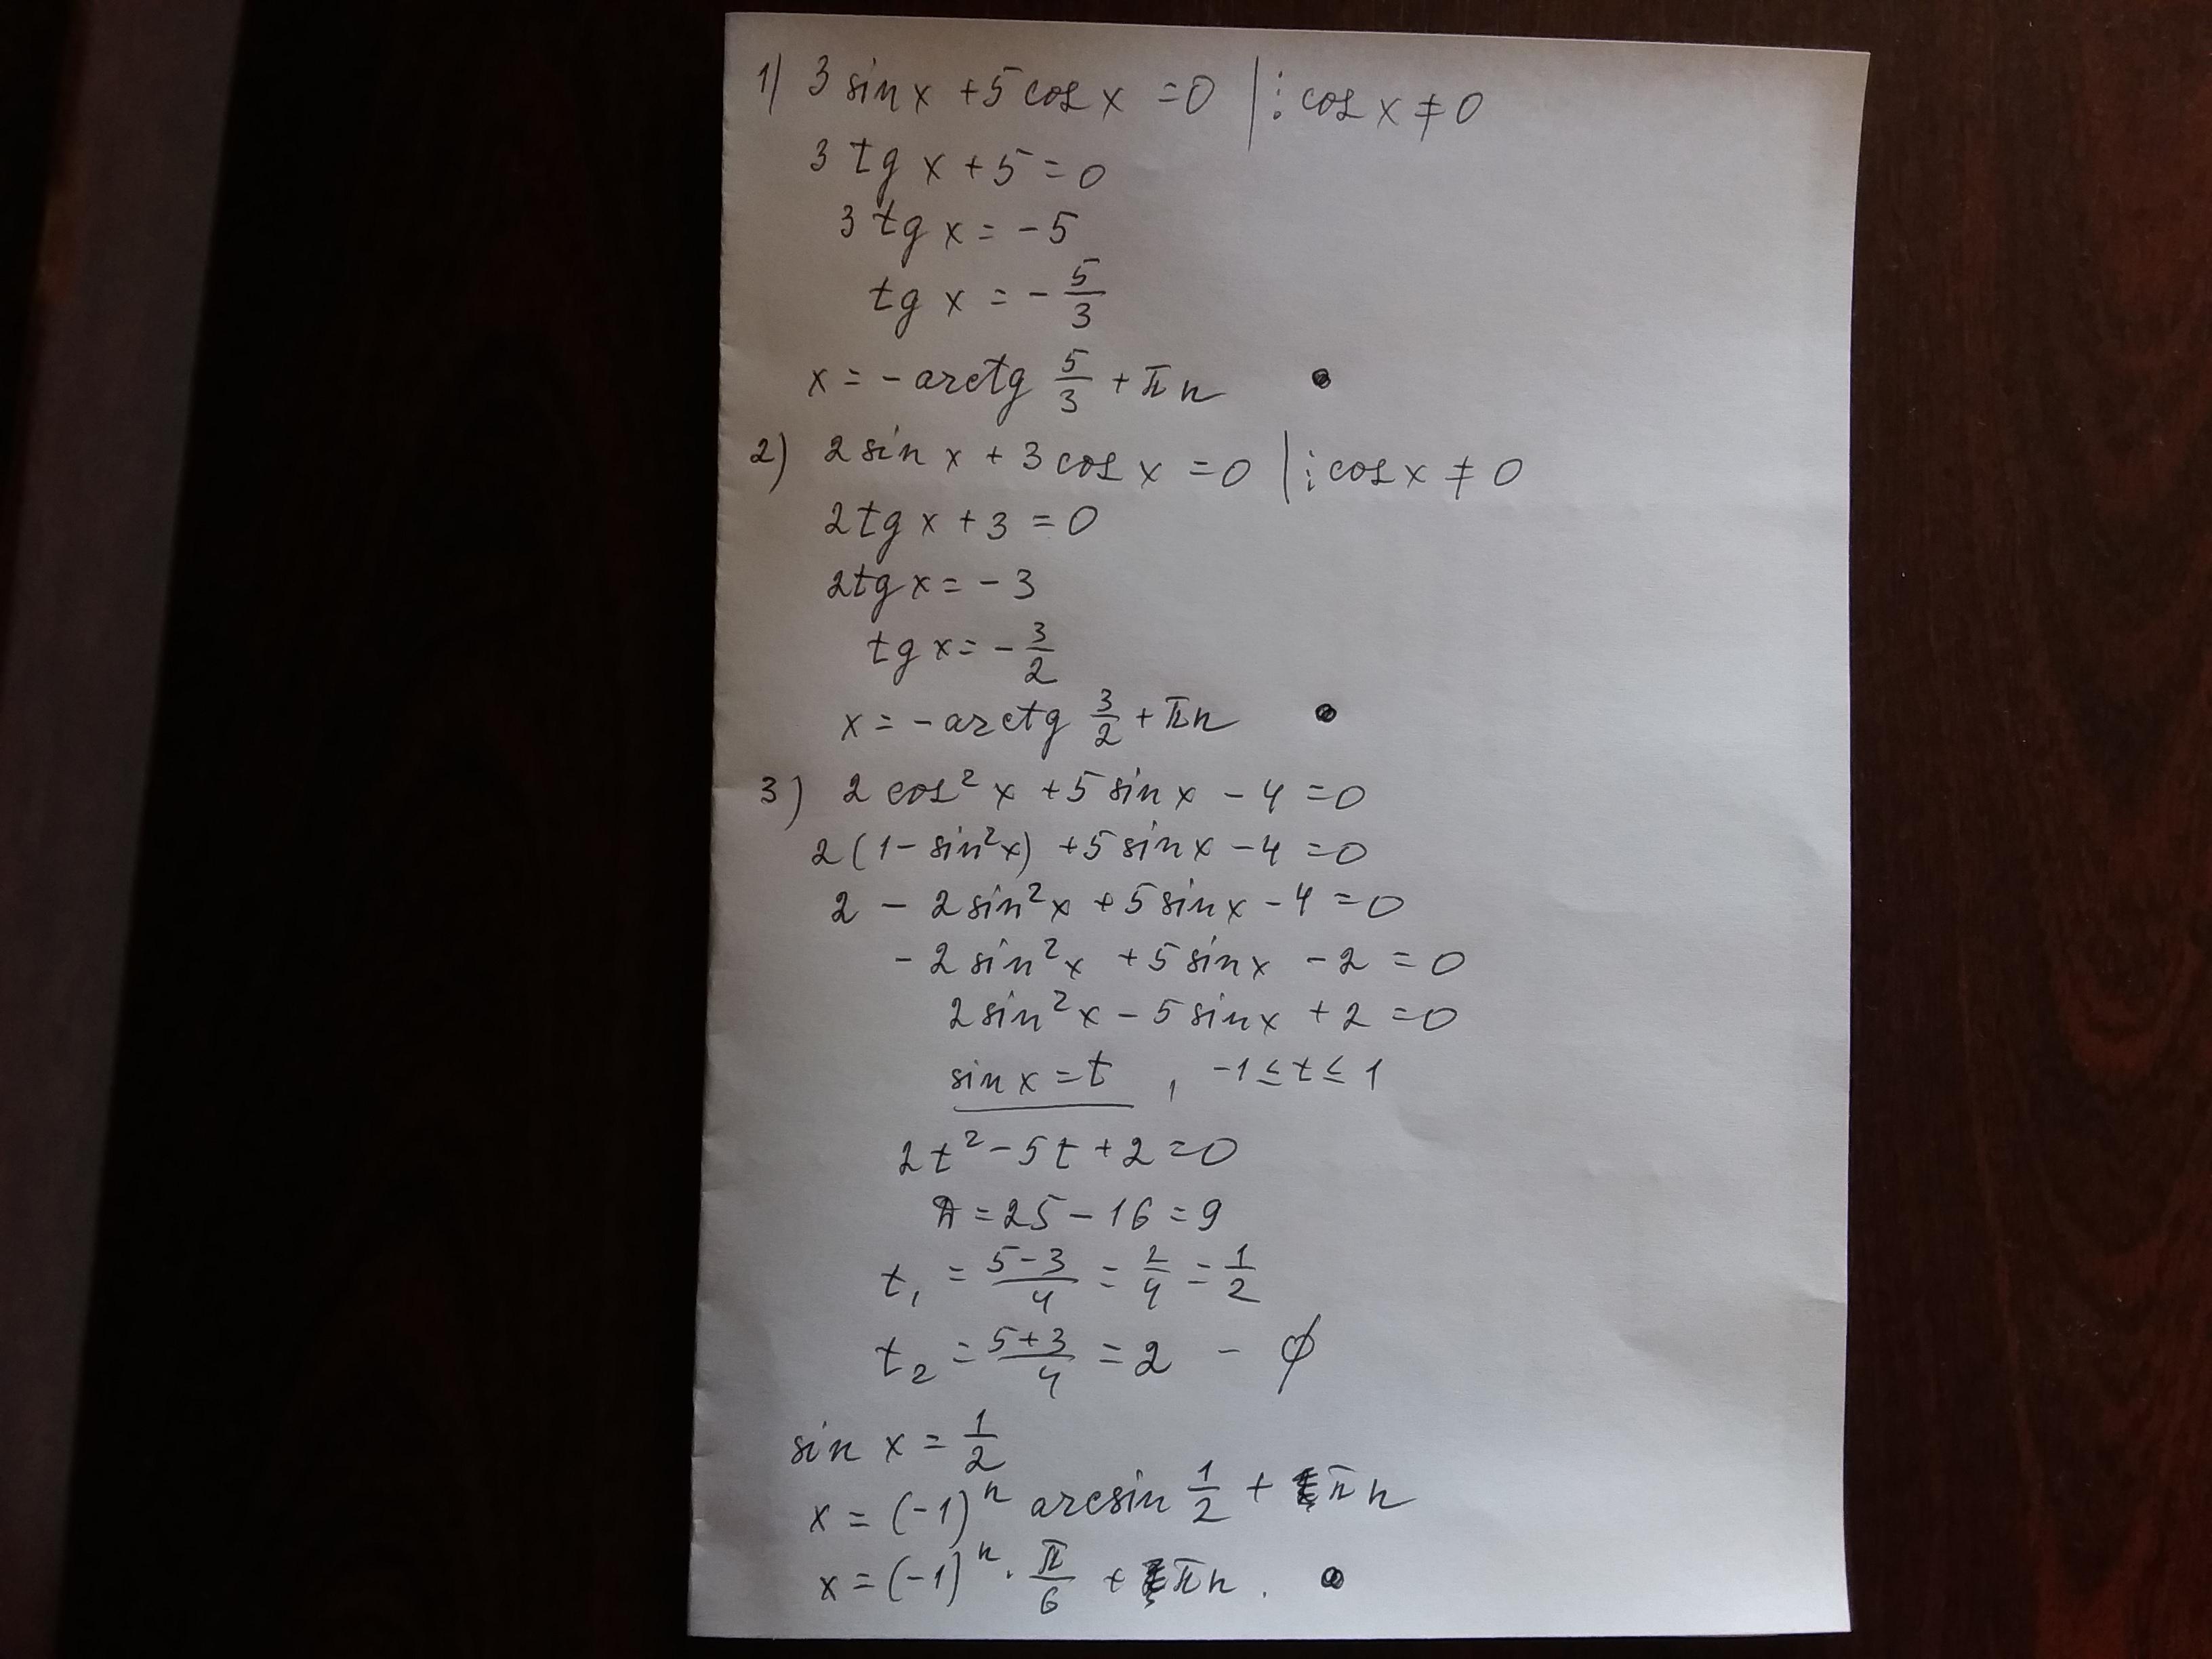 1) 3 sin x + 5 cos x = 0 | : cos x ≠ 0
3 tg x + 5 = 0
3 tg x = - 5
tg x = - 5/3
x = - arctg 5/3 + πn
2) 2 sin x + 3 cos x = 0 | : cos x ≠ 0
2 tg x + 3 = 0
2 tg x = - 3
tg x = - 3/2
x = - arctg 3/2 + πn
3) 2 cos² x + 5 sin x - 4 = 0
2 (1 - sin² x) + 5 sin x - 4 = 0
2 - 2 sin² x + 5 sin x - 4 = 0
- 2 sin² x + 5 sin x - 2 = 0
2 sin² x - 5 sin x + 2 = 0
sin x = t , -1 ≤ t ≤ 1
2t² - 5t + 2 = 0
Д = 25 - 16 = 9
t₁ = (5-3)/4 = 2/4 = 1/2
t₂ = (5+3)/4 = 2 - ∅
sin x = 1/2
x = (-1)ⁿ arcsin 1/2 + πn
x = (-1)ⁿ · π/6 + πn .